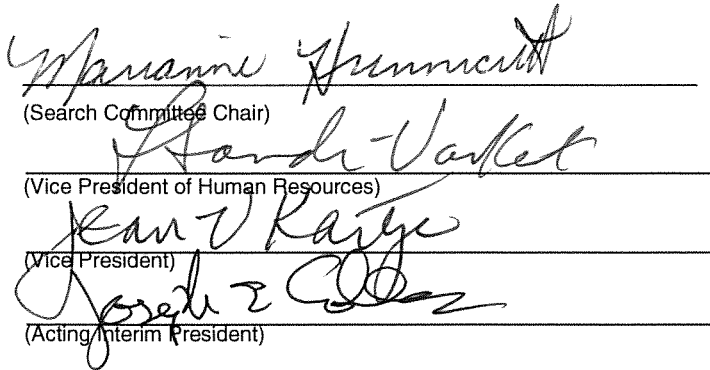 Marianne Hunnicutt
(Search Committee Chair)
(Vice President of Human Resources)
Jean V Kartje
(Vice President)
Joseph E Collins
(Acting Interim President)